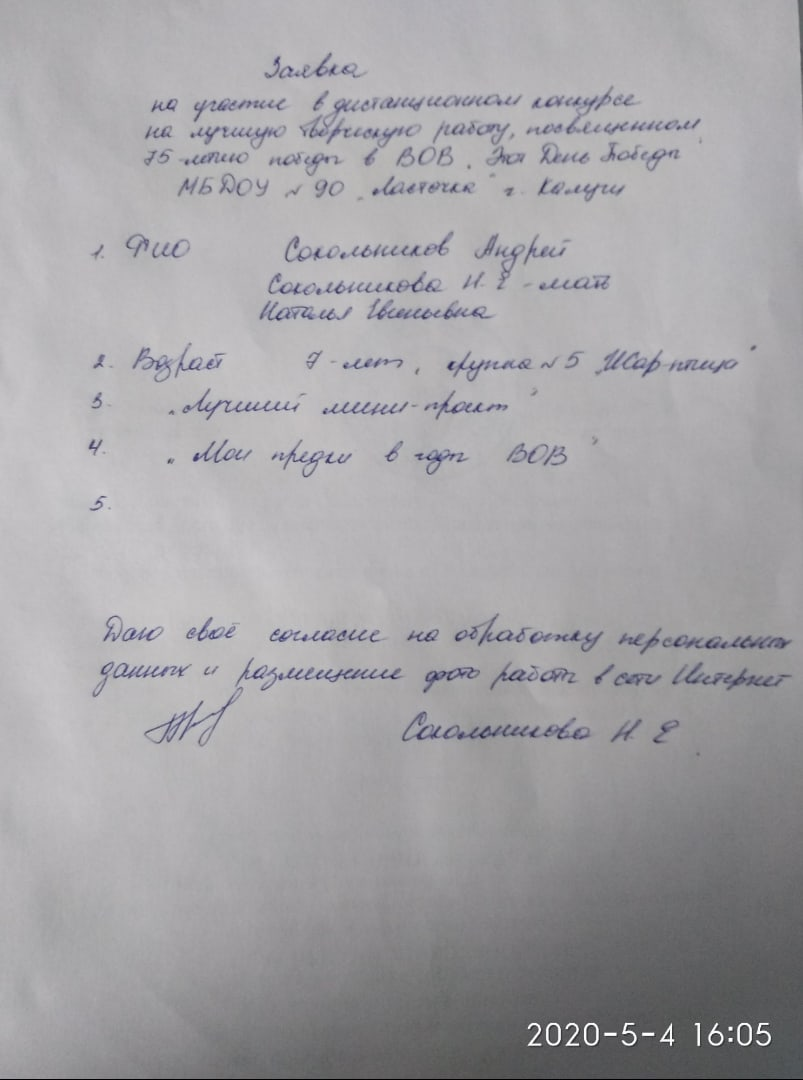 Заявка
на участие в дистанционном конкурсе
на лучшую творческую работу, посвященном
75-летию победы в ВОВ „Этот День Победы"
МБДОУ №90 „Ласточка" г. Калуги
1. ФИО Сокольников Андрей
Сокольникова Н. Е - мать
Наталья Евгеньевна
2. Возраст 7-лет, группа №5 „Жар-птица"
3. „Лучший мини-проект"
4. „Мои предки в годы ВОВ"
5.
Даю своё согласие на обработку персональных
данных и размещение фото работы в сети Интернет
Сокольникова Н. Е.
2020-5-4 16:05